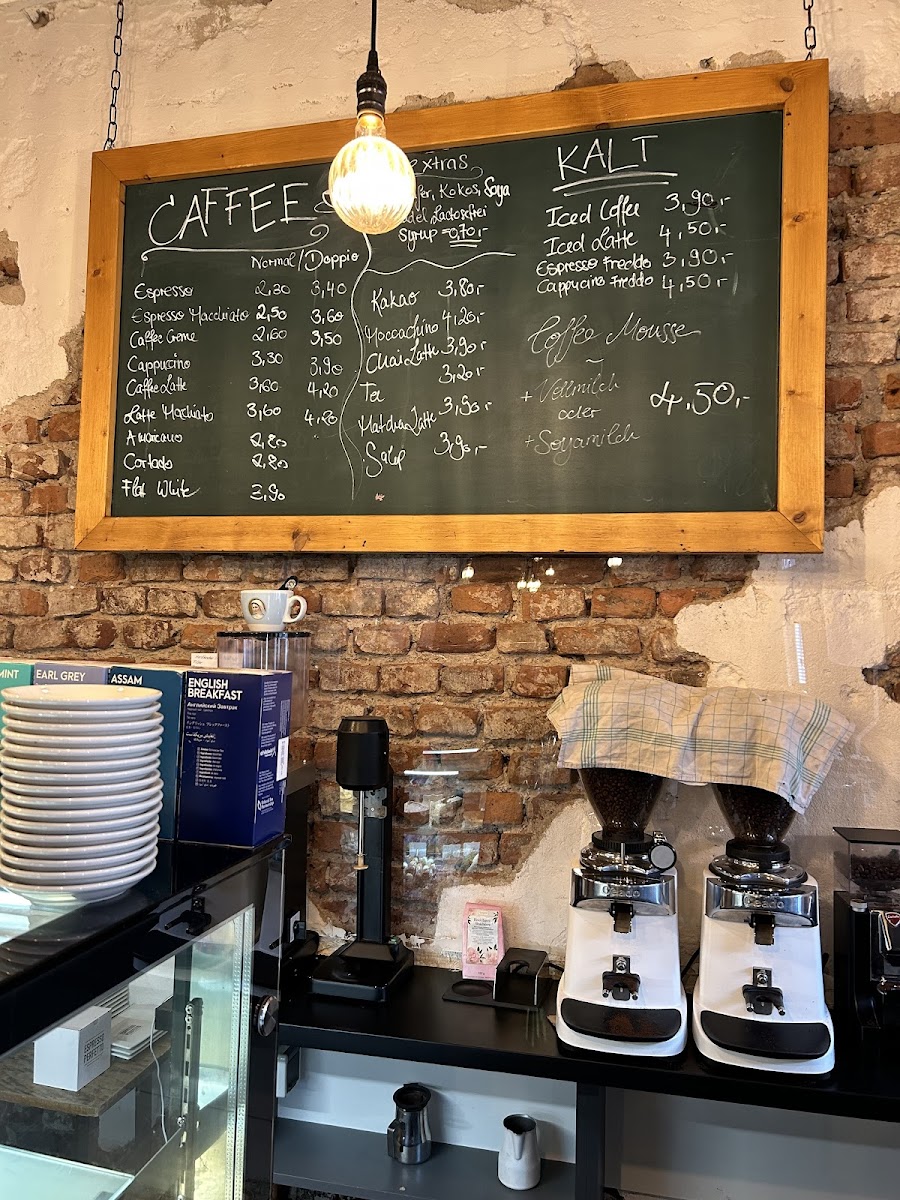 CAFFEE
Normal / Doppio
Espresso 2,30 3,40
Espresso Macchiato 2,50 3,60
Caffee Creme 2,60 3,50
Cappucino 3,30 3,90
Caffee Latte 3,60 4,20
Latte Machiato 3,60 4,20
Americano 2,80
Cortado 2,80
Flat White 3,90
extras
Kokos, Soya
Lactosfrei
Syrup = 0,70,-
Kakao 3,80,-
Moccachino 4,20,-
Chai Latte 3,90,-
Tea 3,20,-
Matcha Latte 3,90,-
Salep 3,90,-
KALT
Iced Coffee 3,90,-
Iced Latte 4,50,-
Espresso Freddo 3,90,-
Cappucino Freddo 4,50,-
Coffee Mousse
+ Vollmilch
oder 4,50,-
+ Soyamilch
MINT
EARL GREY
ASSAM
ENGLISH
BREAKFAST
Английский Завтрак
Ceado
Ceado
ESPRESSO
PERFETTO